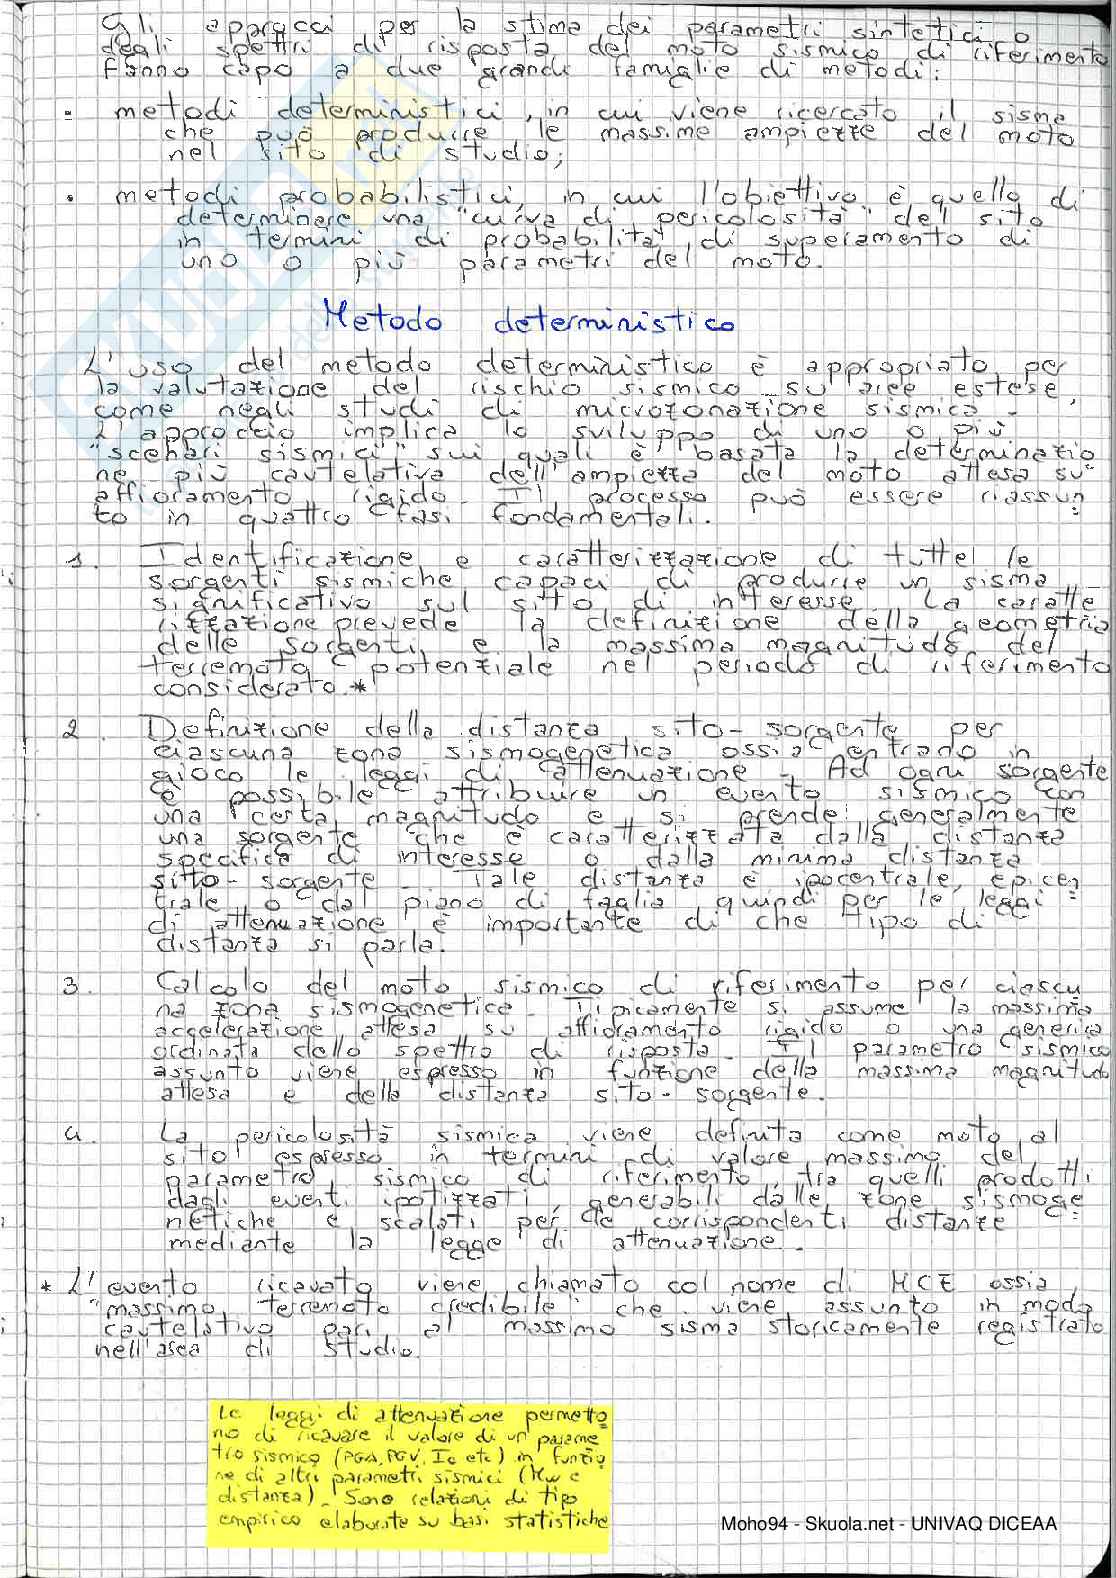 Gli approcci per la stima dei parametri sintetici o
degli spettri di risposta del moto sismico di riferimento
fanno capo a due grandi famiglie di metodi:
- metodi deterministici, in cui viene ricercato il sisma
che può produrre le massime ampiezze del moto
nel sito di studio;
• metodi probabilistici, in cui l'obiettivo è quello di
determinare una "curva di pericolosità" del sito
in termini di probabilità di superamento di
uno o più parametri del moto.
Metodo deterministico
L'uso del metodo deterministico è appropriato per
la valutazione del rischio sismico su aree estese,
come negli studi di microzonazione sismica.
L'approccio implica lo sviluppo di uno o più
"scenari sismici" sui quali è basata la determinazio
ne più cautelativa dell'ampiezza del moto attesa su
affioramento rigido. Il processo può essere riassun
to in quattro fasi fondamentali.
1. Identificazione e caratterizzazione di tutte le
sorgenti sismiche capaci di produrre un sisma
significativo sul sito di interesse. La caratte
rizzazione prevede la definizione della geometria
delle sorgenti e la massima magnitudo del
terremoto potenziale nel periodo di riferimento
considerato.*
2. Definizione della distanza sito-sorgente per
ciascuna zona sismogenetica ossia entrano in
gioco le leggi di attenuazione. Ad ogni sorgente
è possibile attribuire un evento sismico con
una certa magnitudo e si prende generalmente
una sorgente che è caratterizzata dalla distanza
specifica di interesse o dalla minima distanza
sito-sorgente. Tale distanza è ipocentrale, epicen
trale o dal piano di faglia quindi per le leggi
di attenuazione è importante di che tipo di
distanza si parla.
3. Calcolo del moto sismico di riferimento per ciascu
na zona sismogenetica. Tipicamente si assume la massima
accelerazione attesa su affioramento rigido o una generica
ordinata dello spettro di risposta. Il parametro sismico
assunto viene espresso in funzione della massima magnitudo
attesa e della distanza sito-sorgente.
4. La pericolosità sismica viene definita come moto al
sito espresso in termini di valore massimo del
parametro sismico di riferimento, tra quelli prodotti
dagli eventi ipotizzati, generabili dalle zone sismoge
netiche e scalati per le corrispondenti distanze
mediante la legge di attenuazione.
* L'evento ricavato viene chiamato col nome di MCE ossia
"massimo terremoto credibile" che viene assunto in modo
cautelativo pari al massimo sisma storicamente registrato
nell'area di studio.
Le leggi di attenuazione permetto
no di ricavare il valore di un parame
tro sismico (PGA, PGV, Ic etc) in funzio
ne di altri parametri sismici (Mw e
distanza). Sono relazioni di tipo
empirico elaborate su basi statistiche
Moho94 - Skuola.net - UNIVAQ DICEAA